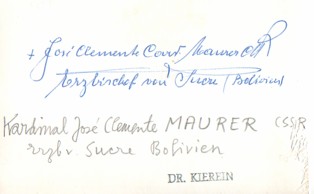 + José Clemente Card. Maurer CSSR
Erzbischof von Sucre (Bolivien)
Kardinal José Clemente MAURER CSSR
Erzbv. Sucre Bolivien
DR. KIEREIN